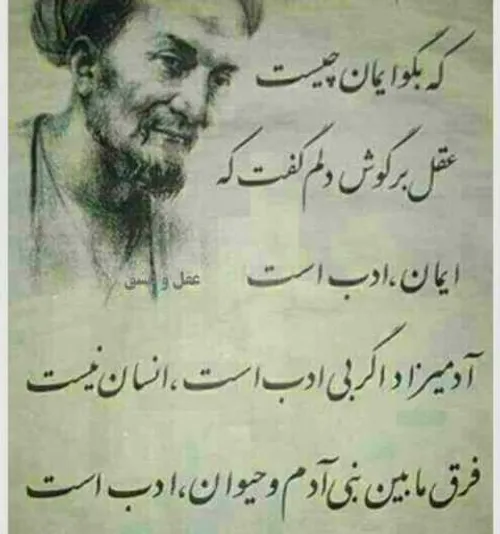 که بگو ایمان چیست
عقل بر گوش دلم گفت که
ایمان ،ادب است
عقل و عشق
آدمیزاد اگر بی ادب است ،انسان نیست
فرق ما بین بنی آدم و حیوان ،ادب است